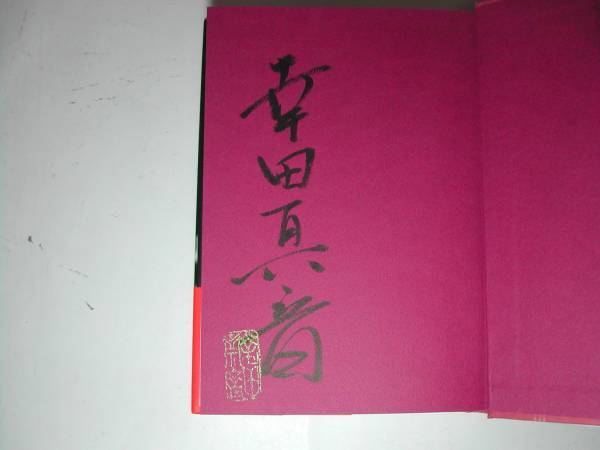 幸田真音